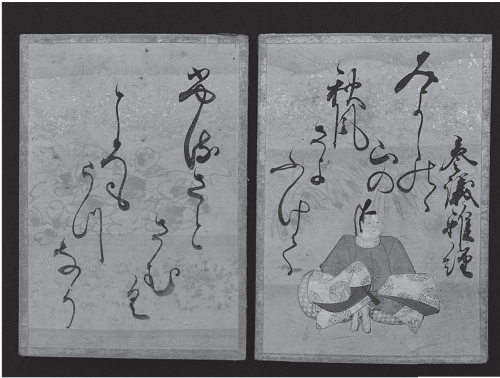 参議雅経
みよしのゝ
山の
秋風
さよ
ふけて
ふるさと
さむく
ころも
うつ
なり